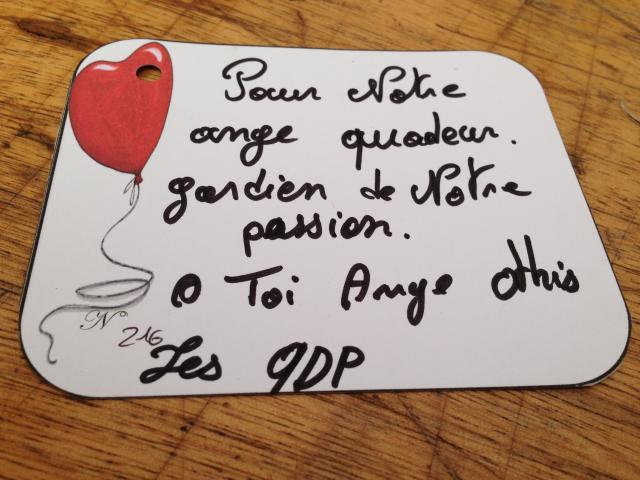 Pour Notre
ange quadeur.
gardien de Notre
passion.
O Toi Ange Othis
N° 216
Les QDP